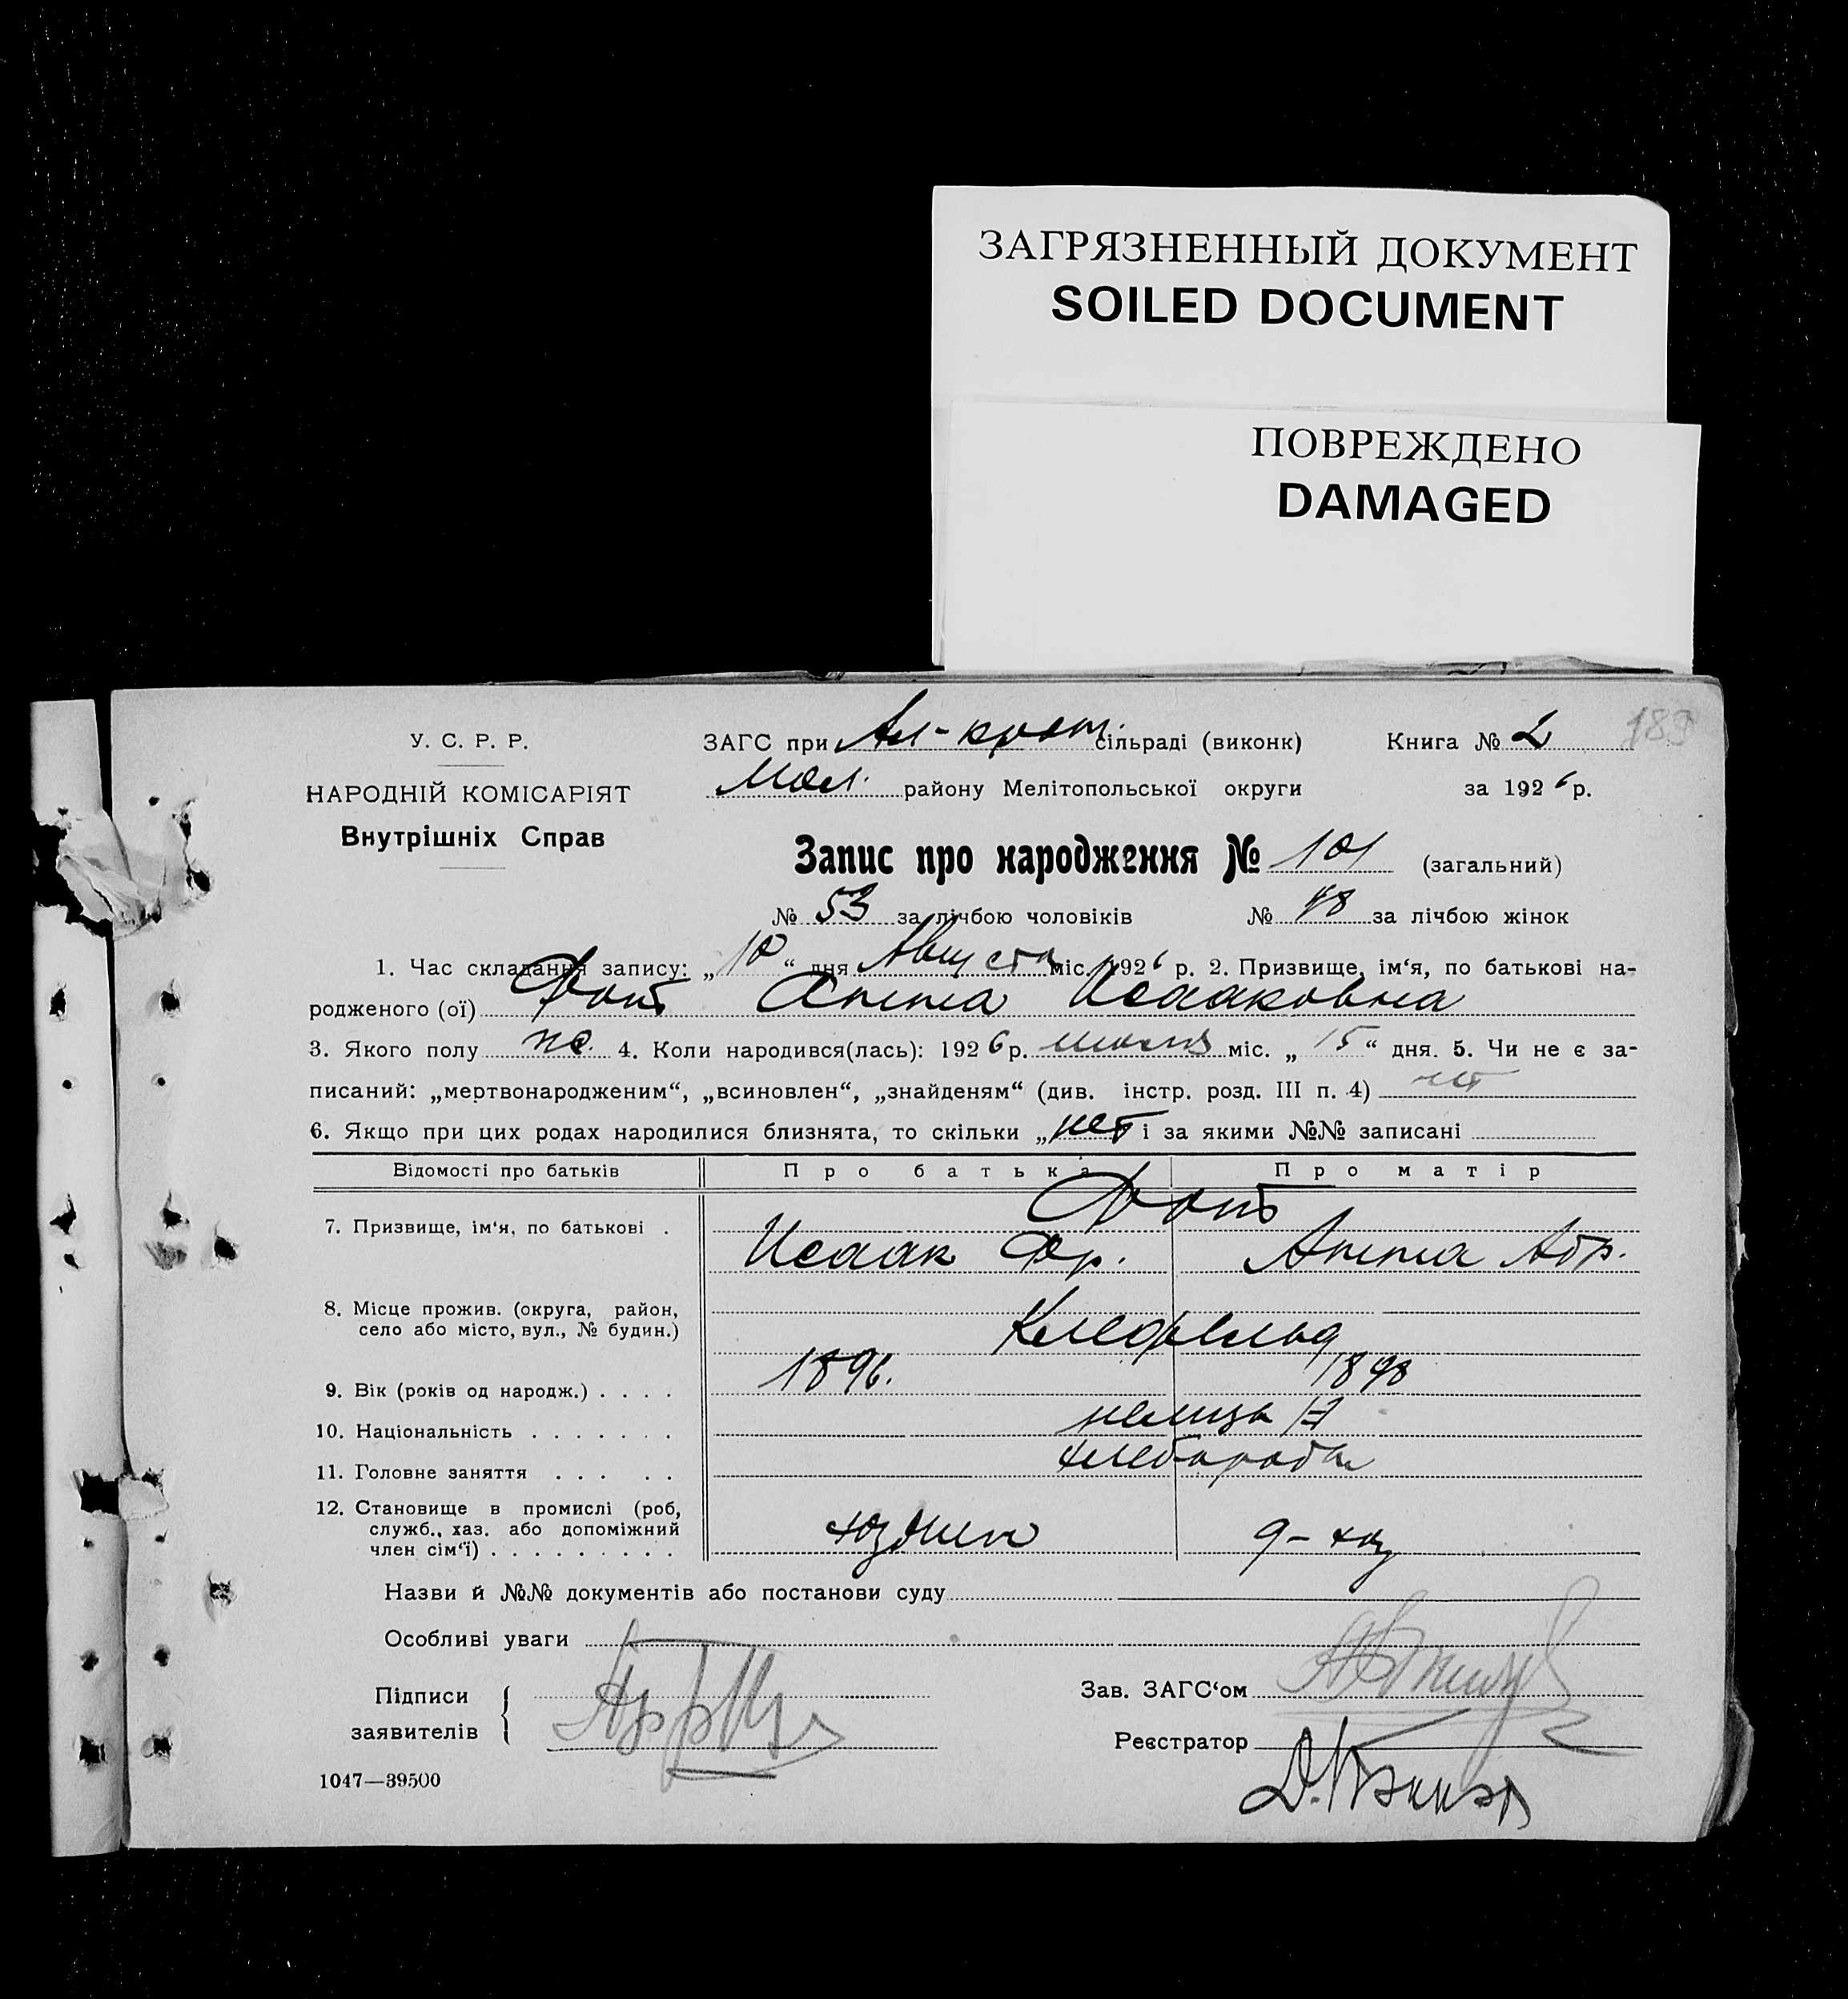 ЗАГРЯЗНЕННЫЙ ДОКУМЕНТ
SOILED DOCUMENT
ПОВРЕЖДЕНО
DAMAGED
189
У. С. Р. Р.
НАРОДНІЙ КОМІСАРІЯТ
Внутрішніх Справ
ЗАГС при Ал-крон. сільраді (виконк) Книга № 2
Мол. району Мелітопольської округи за 1926 р.
Запис про народження № 101 (загальний)
№ 53 за лічбою чоловіків № 48 за лічбою жінок
1. Час складання запису: „10“ дня Августа міс. 1926 р. 2. Призвище, ім‘я, по батькові на-
родженого (ої) Фот Анна Исааковна
3. Якого полу же. 4. Коли народився(лась): 1926 р. міс. „15“ дня. 5. Чи не є за-
писаний: „мертвонародженим“, „всиновлен“, „знайденям“ (див. інстр. розд. III п. 4) нет
6. Якщо при цих родах народилися близнята, то скільки „нет і за якими №№ записані
Відомості про батьків Про батька Про матір
7. Призвище, ім‘я, по батькові . Фот
Исаак Фр. Анна Абр.
8. Місце прожив. (округа, район,
село або місто, вул., № будин.) Клефельд
9. Вік (років од народж.) . . . . 1896. 1898
10. Національність . . . . . . . немцы
11. Головне заняття . . . . . хлебороб
12. Становище в промислі (роб,
служб., хаз. або допоміжний
член сім‘ї) . . . . . . . . . хозяин д-хоз
Назви й №№ документів або постанови суду
Особливі уваги
Підписи
заявителів
Зав. ЗАГС‘ом
Реєстратор
1047—39500